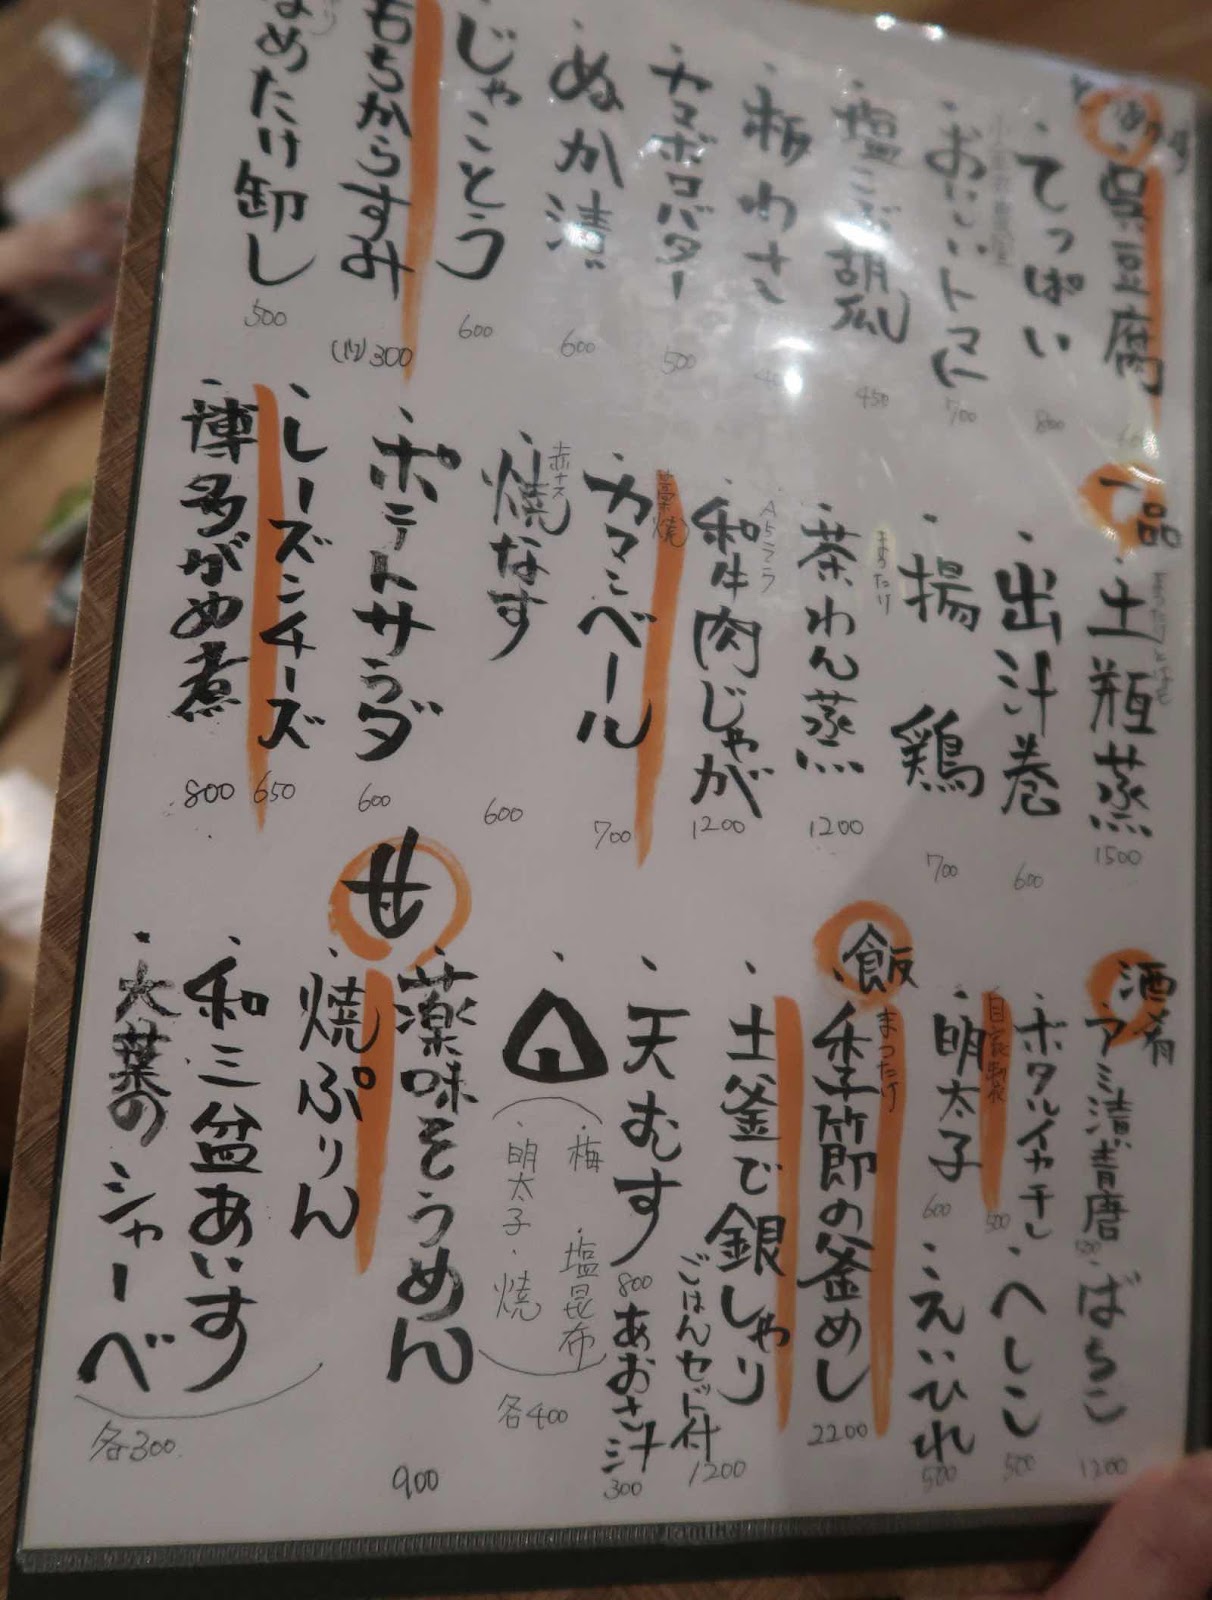 呉豆腐
てっぱい
800
おいしいトマト
700
塩こぶ胡瓜
450
板わさ
カマンボロバター
500
ぬか漬
600
じゃことう
600
もちからすみ
300
なめたけ卸し
500
一品
土瓶蒸
1500
出汁巻
600
揚鶏
700
茶わん蒸
1200
和牛肉じゃが
1200
藁焼
カマンベール
700
赤ナス
焼なす
600
ポテトサラダ
600
レーズンチーズ
650
博多がめ煮
800
酒肴
アミ漬青唐
ばちこ
1200
ホタルイカ干し
500
へしこ
500
自家製
明太子
600
えいひれ
500
飯
まつたけ
季節の釜めし
2200
土釜で銀しゃり
ごはんセット付
1200
天むす
800
あおさ汁
300
梅・塩昆布
明太子・焼
各400
薬味そうめん
900
甘
焼ぷりん
和三盆あいす
大葉のシャーベ
各300